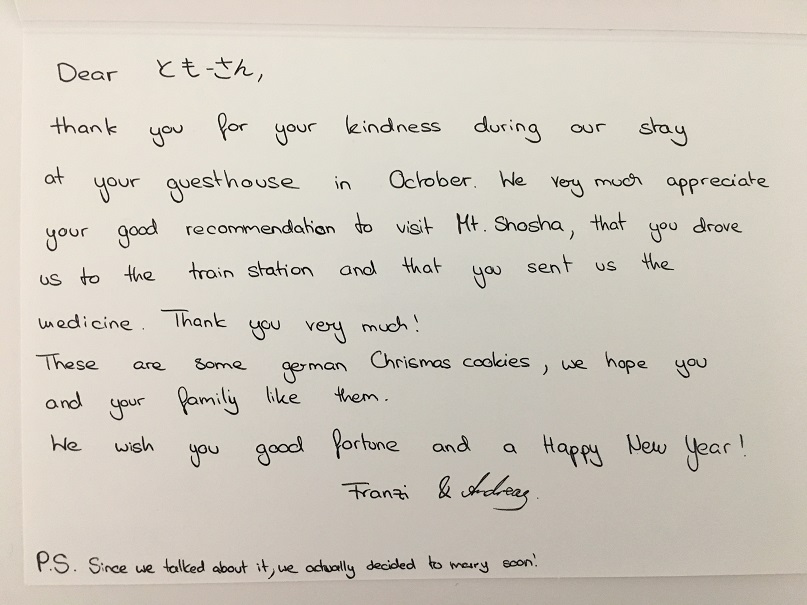 Dear ともーさん,
thank you for your kindness during our stay
at your guesthouse in October. We very much appreciate
your good recommendation to visit Mt. Shosha, that you drove
us to the train station and that you sent us the
medicine. Thank you very much!
These are some german Chrismas cookies, we hope you
and your family like them.
We wish you good fortune and a Happy New Year!
Franzi & Andreas.
P.S. Since we talked about it, we actually decided to marry soon!